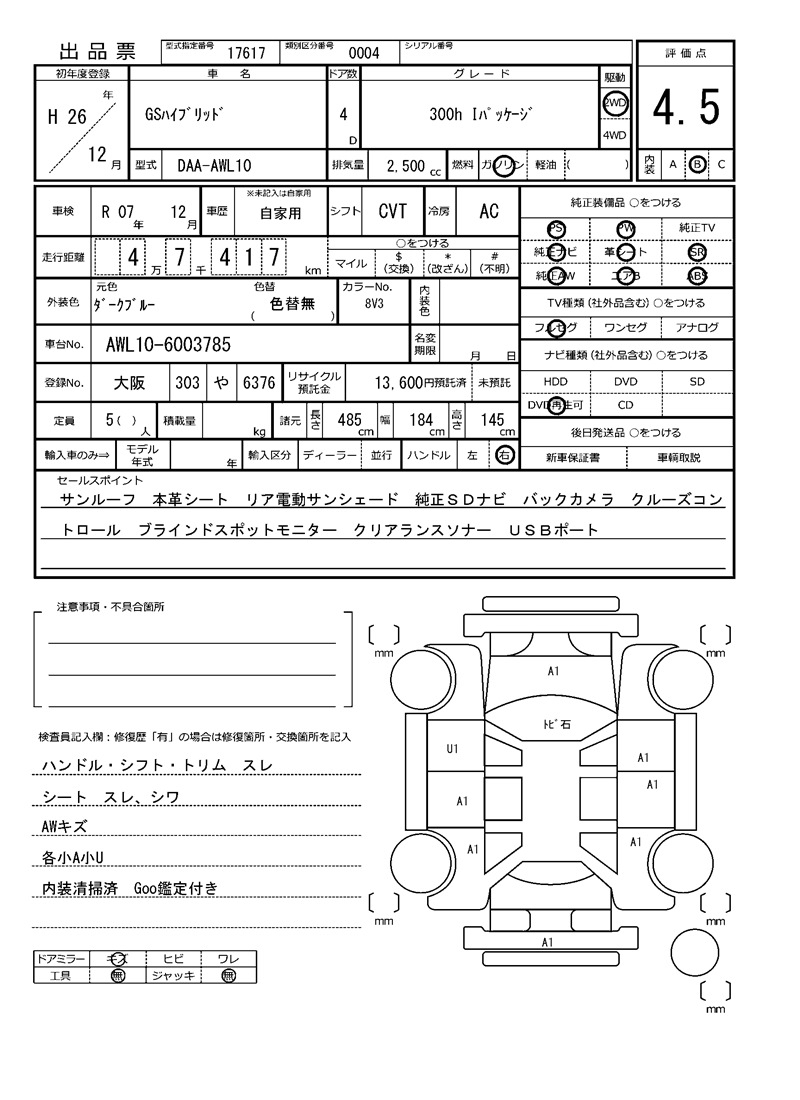 出品票 型式指定番号 17617 類別区分番号 0004 シリアル番号
評価点
4.5
内装 A B C
初年度登録 車名 ドア数 グレード 駆動
H 26 年 12 月
GSハイブリッド 4 D 300h Iパッケージ
2WD
4WD
型式 DAA-AWL10 排気量 2,500 cc 燃料 ガソリン 軽油 ( )
車検 R 07 年 12 月 車歴 ※未記入は自家用 自家用 シフト CVT 冷房 AC
走行距離 4 万 7 千 4 1 7 km
○をつける
マイル $ (交換) * (改ざん) # (不明)
外装色 元色 ダークブルー 色替 色替無 ( ) カラーNo. 8V3 内装色
車台No. AWL10-6003785 名変期限 月 日
登録No. 大阪 303 や 6376 リサイクル預託金 13,600円預託済 未預託
定員 5( ) 人 積載量 kg 諸元 長さ 485 cm 幅 184 cm 高さ 145 cm
輸入車のみ⇒ モデル年式 年 輸入区分 ディーラー 並行 ハンドル 左 右
純正装備品 ○をつける
PS PW 純正TV
純正ナビ 革シート SR
純正AW エアB ABS
TV種類(社外品含む)○をつける
フルセグ ワンセグ アナログ
ナビ種類(社外品含む)○をつける
HDD DVD SD
DVD再生可 CD
後日発送品 ○をつける
新車保証書 車輌取説
セールスポイント
サンルーフ 本革シート リア電動サンシェード 純正SDナビ バックカメラ クルーズコン
トロール ブラインドスポットモニター クリアランスソナー USBポート
注意事項・不具合箇所
検査員記入欄:修復歴「有」の場合は修復箇所・交換箇所を記入
ハンドル・シフト・トリム スレ
シート スレ、シワ
AWキズ
各小A小U
内装清掃済 Goo鑑定付き
ドアミラー キズ ヒビ ワレ
工具 無 ジャッキ 無
mm mm
A1
トビ石
U1 A1
A1 A1
A1 A1
mm mm
A1
mm